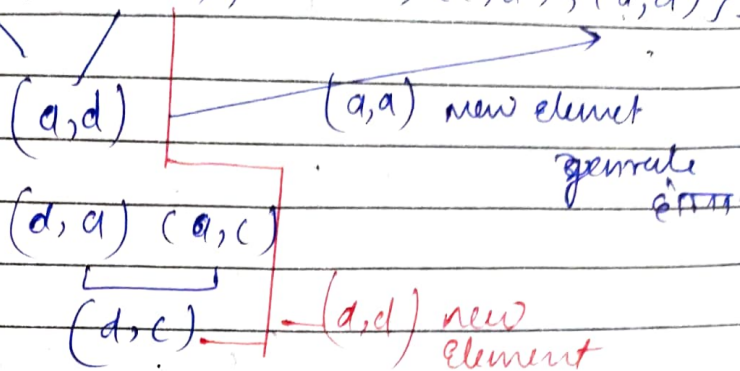 (a,d)
(a,a) new elemet
genrate
होगा
(d, a) (a, c)
(d, c)
(d,d) new
Element